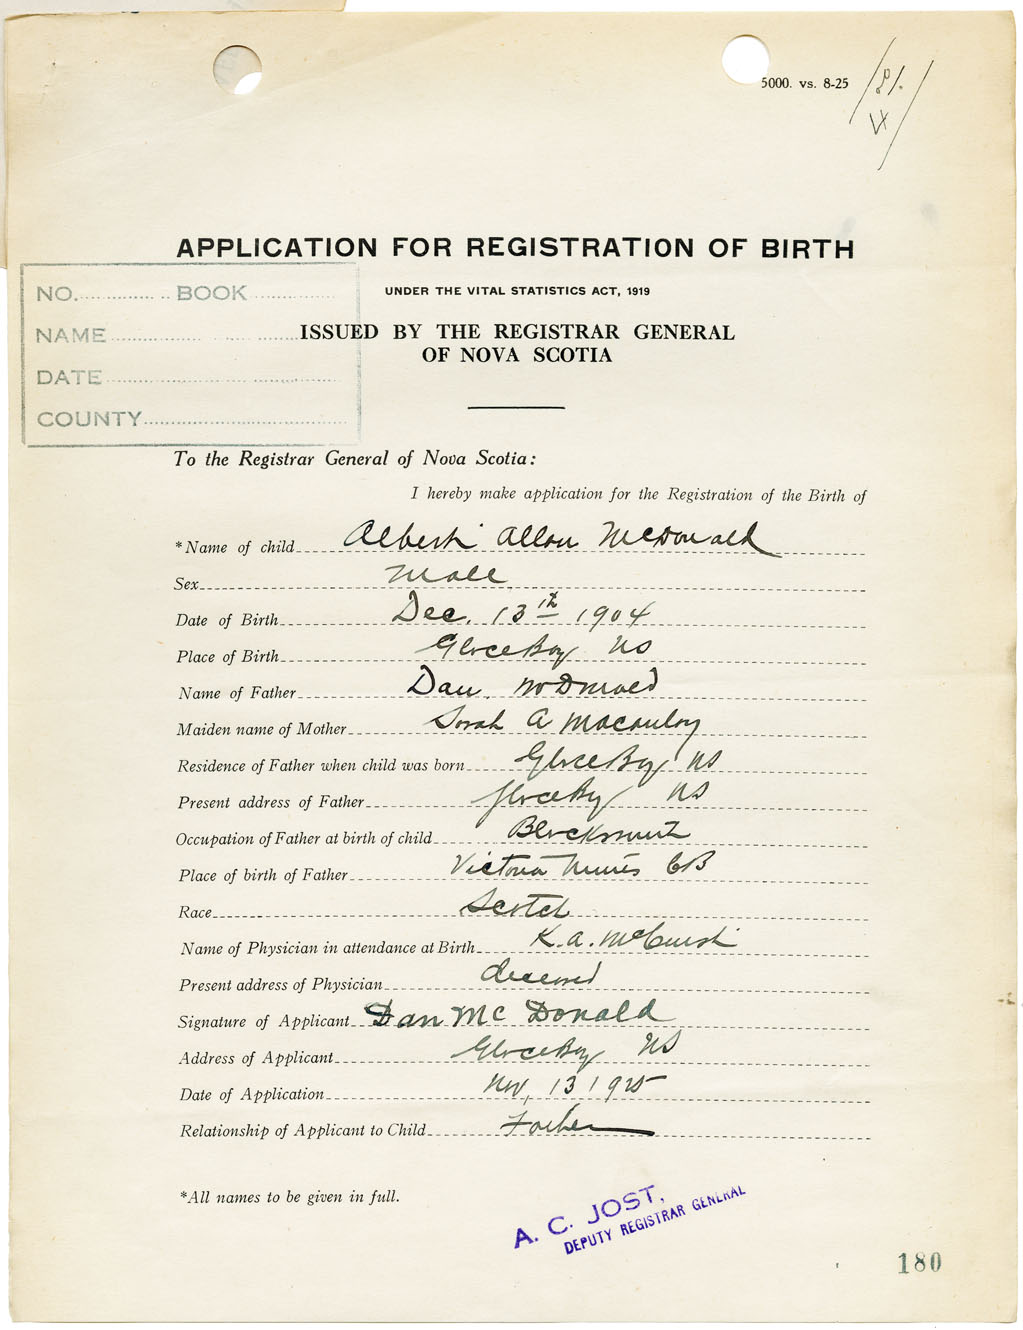 5000. vs. 8-25
APPLICATION FOR REGISTRATION OF BIRTH
UNDER THE VITAL STATISTICS ACT, 1919
ISSUED BY THE REGISTRAR GENERAL
OF NOVA SCOTIA
NO. BOOK
NAME
DATE
COUNTY
To the Registrar General of Nova Scotia:
I hereby make application for the Registration of the Birth of
*Name of child Albert Allan McDonald
Sex Male
Date of Birth Dec. 13th 1904
Place of Birth Glace Bay NS
Name of Father Dan McDonald
Maiden name of Mother Sarah A Macaulay
Residence of Father when child was born Glace Bay NS
Present address of Father Glace Bay NS
Occupation of Father at birth of child Blacksmith
Place of birth of Father Victoria Mines CB
Race Scotch
Name of Physician in attendance at Birth K. A. 
Present address of Physician deceased
Signature of Applicant Dan Mc Donald
Address of Applicant Glace Bay NS
Date of Application Nov, 13 1925
Relationship of Applicant to Child Father
*All names to be given in full.
A. C. JOST,
DEPUTY REGISTRAR GENERAL
180